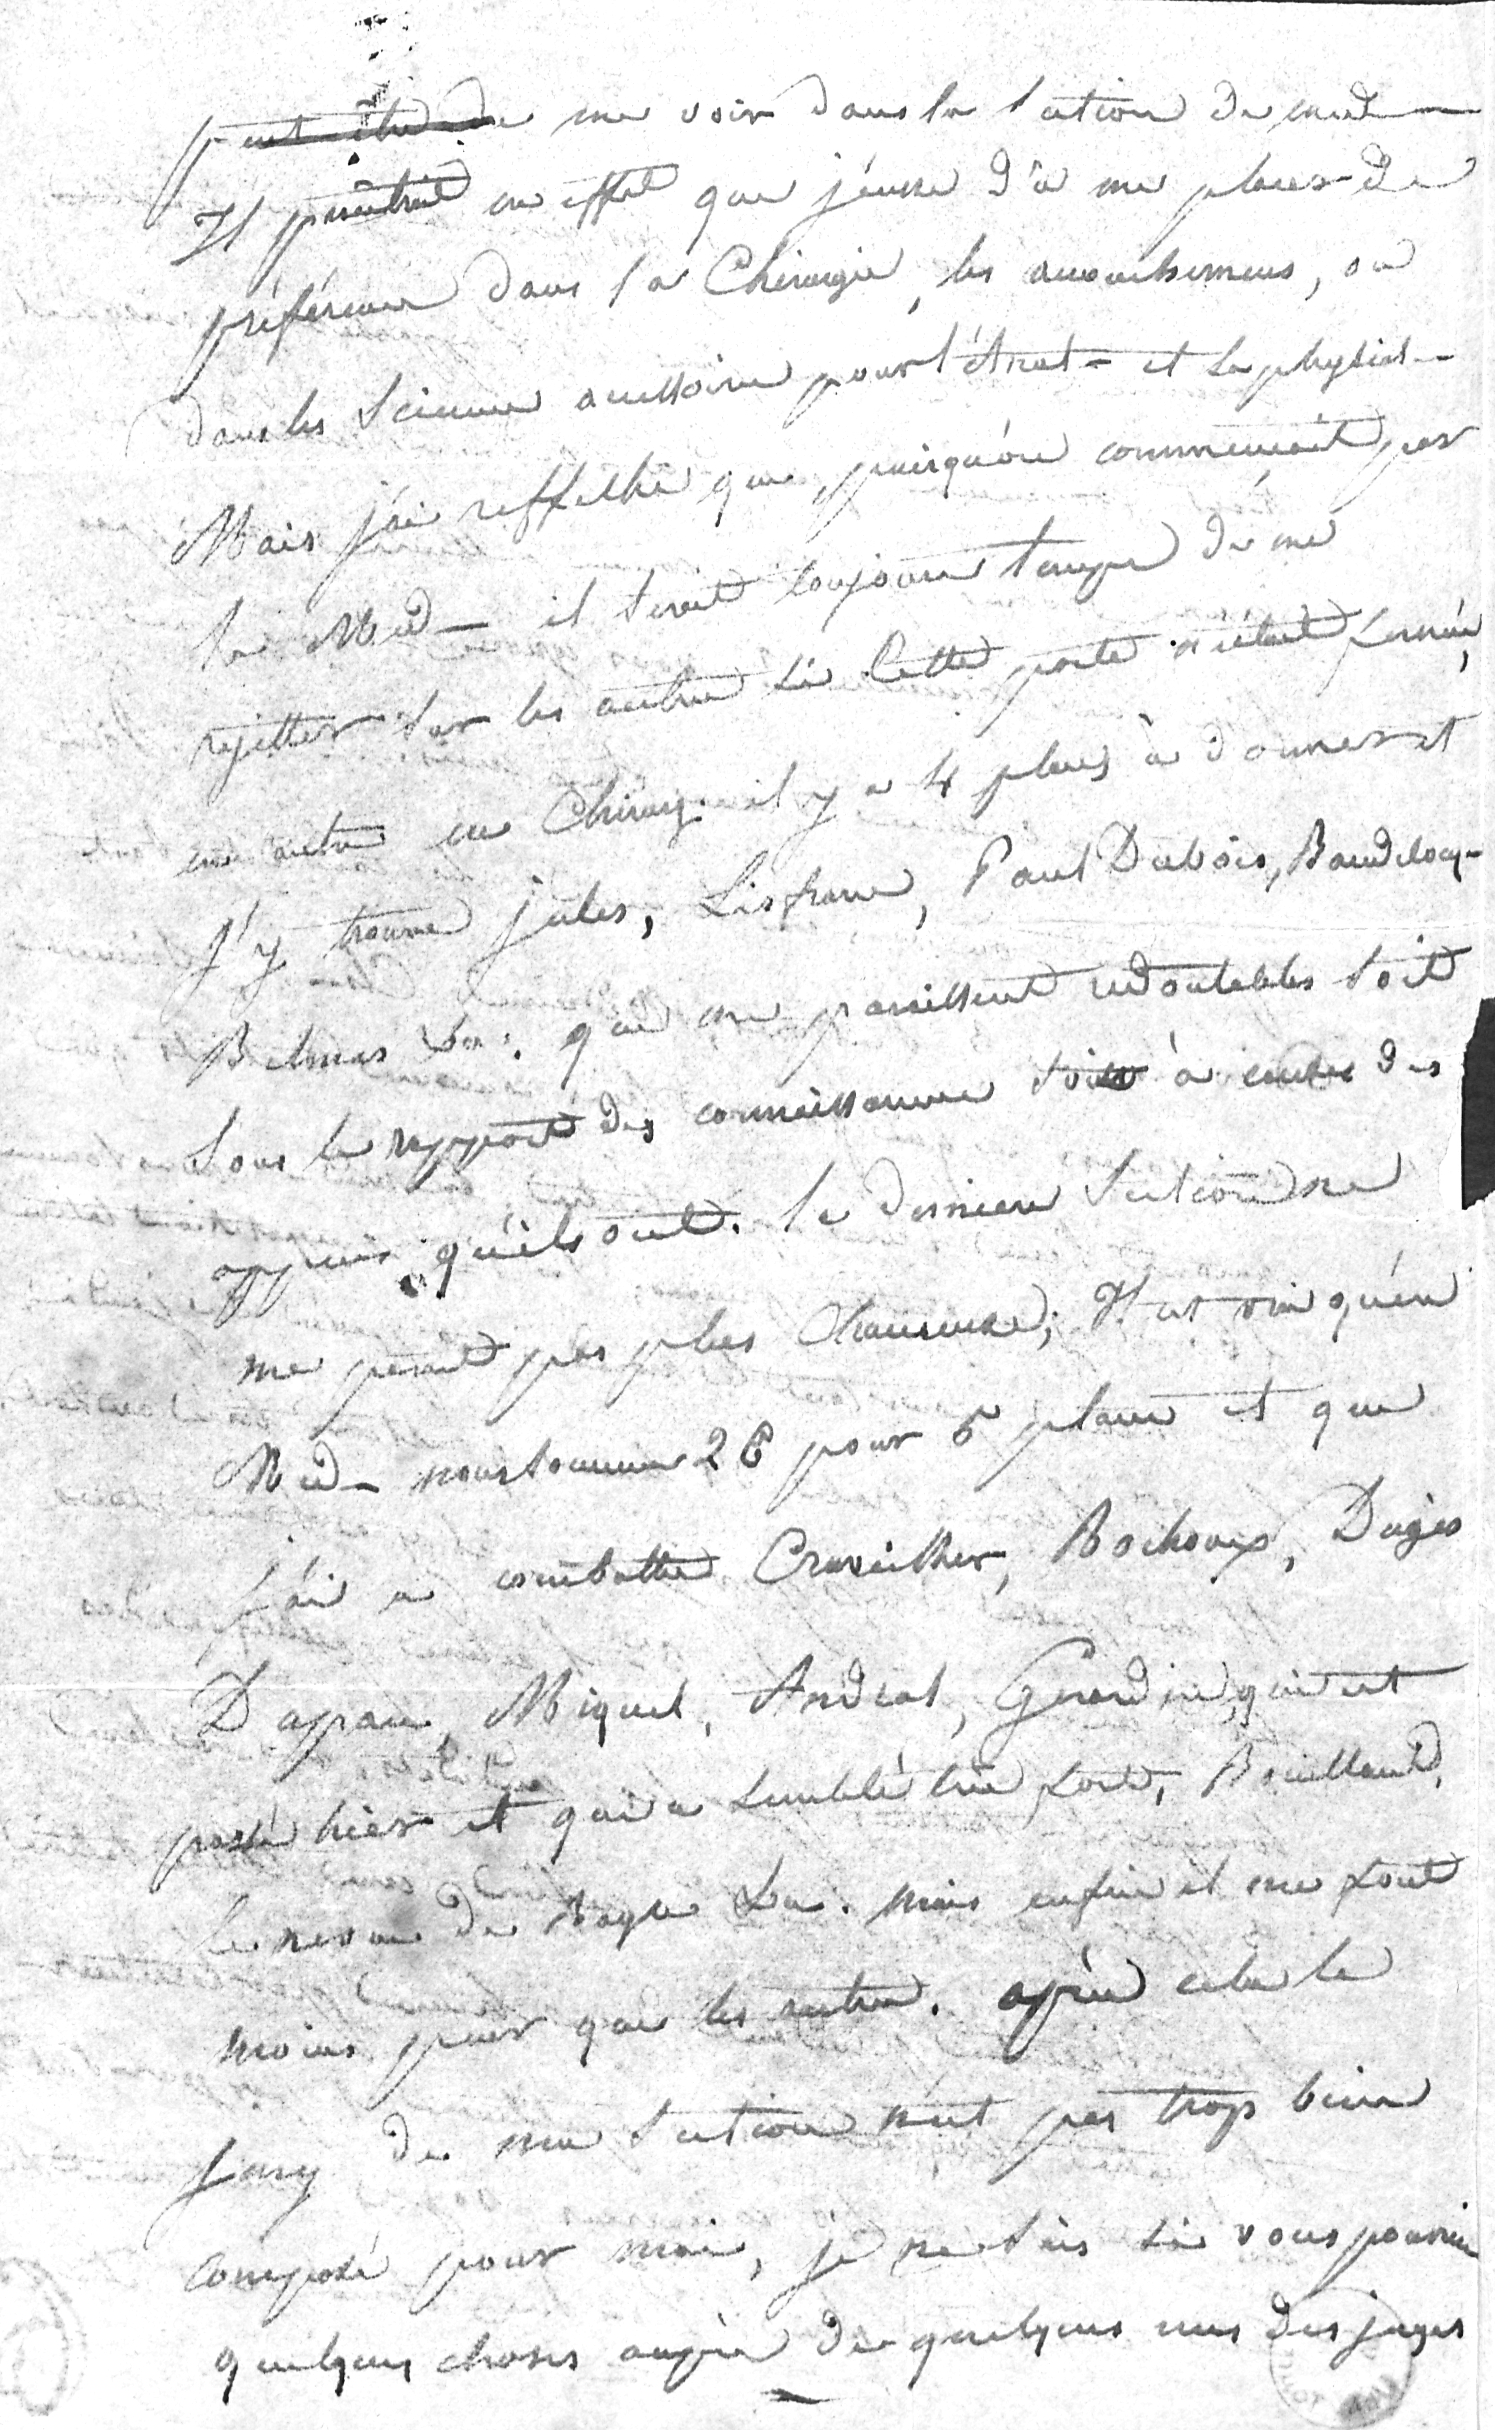 peut être de me voir dans la section de med —
Il paraitrait en effet que j'eusse dû me placer de
préférence dans la Chirurgie, les accouchemens, ou
dans les Sciences accessoires pour l'Anat- et la physiol-
Mais j'ai refflechi que, puisqu'on commençait par
la Med- il serait toujours temps de me
rejetter sur les autres si Cette porte m'était fermée,
en outre en Chirurg. il y a 4 places à donner et
j'y trouve jules, Lisfranc, Paul Dubois, Baudelocq-
Belmas &a. qui me paraissent redoutables soit
sous le rapport des connaissances soit à cause des
appuis qu'ils ont. la derniere section ne
me parait pas plus Chanceuse; Il est vrai qu'en
Med- nous sommes 26 pour 5 places et que
j'ai a combattre Cruveilher, Rochoux, Dugès
Dapau, Miquel, Andral, Gerardin, qui est
passé hier et qui a semblé très fort, Bouillaud,
le neveu de Bayle &a. mais enfin il me font
moins peur que les autres. après cela le
jury de ma section n'est pas trop bien
composé pour moi, je ne sais si vous pourriez
quelques choses auprès de quelques uns des juges